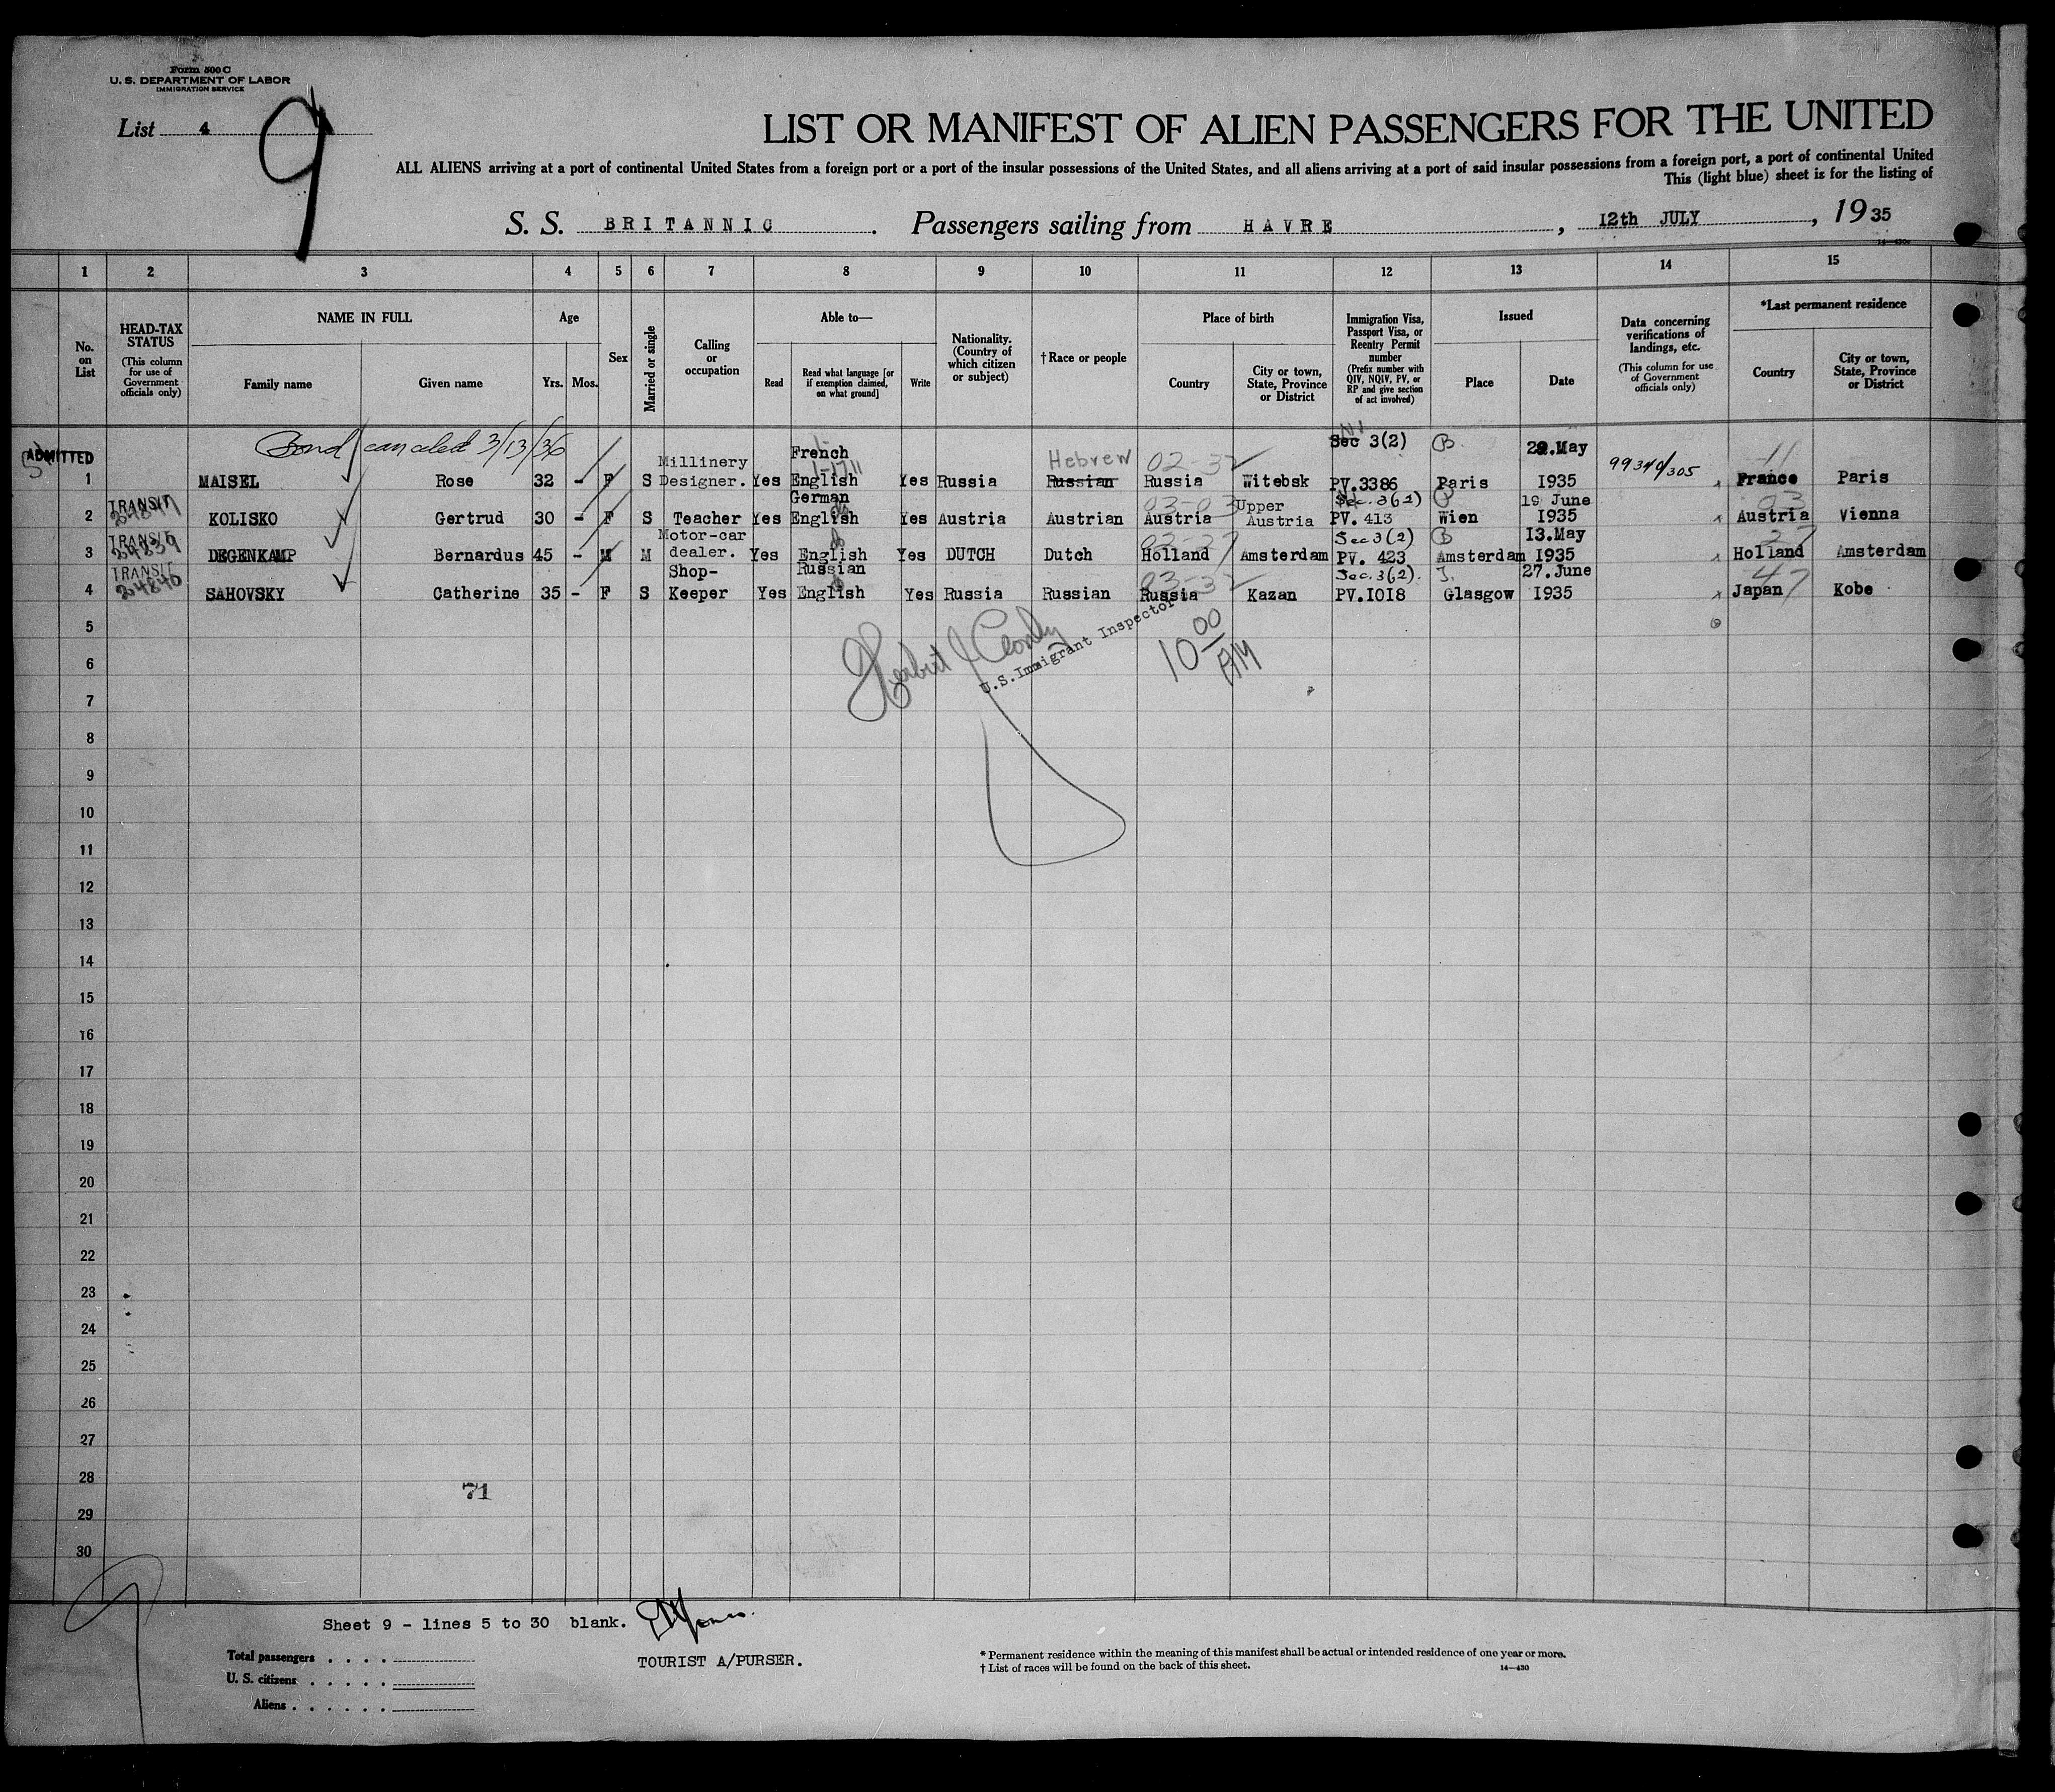 Form 500 C
U. S. DEPARTMENT OF LABOR
IMMIGRATION SERVICE
List 4
9
LIST OR MANIFEST OF ALIEN PASSENGERS FOR THE UNITED
ALL ALIENS arriving at a port of continental United States from a foreign port or a port of the insular possessions of the United States, and all aliens arriving at a port of said insular possessions from a foreign port, a port of continental United
This (light blue) sheet is for the listing of
S. S. BRITANNIC. Passengers sailing from HAVRE, 12th JULY, 1935
1 2 3 4 5 6 7 8 9 10 11 12 13 14 15
No. on List
HEAD-TAX STATUS (This column for use of Government officials only)
NAME IN FULL
Family name
Given name
Age
Yrs. Mos.
Sex
Married or single
Calling or occupation
Able to—
Read
Read what language [or if exemption claimed, on what ground]
Write
Nationality. (Country of which citizen or subject)
†Race or people
Place of birth
Country
City or town, State, Province or District
Immigration Visa, Passport Visa, or Reentry Permit number (Prefix number with QIV, NQIV, PV, or RP and give section of act involved)
Issued
Place
Date
Data concerning verifications of landings, etc. (This column for use of Government officials only)
*Last permanent residence
Country
City or town, State, Province or District
Bond canceled 3/13/36
ADMITTED French Sec 3(2) B 29.May
Millinery Hebrew 02-32 99340/305 11
1 MAISEL Rose 32 - F S Designer. Yes English Yes Russia Russian Russia Witebsk PV.3386 Paris 1935 France Paris
TRANSIT German 03-03 Upper Sec. 3(2) 19 June
2 KOLISKO Gertrud 30 - F S Teacher Yes English Yes Austria Austrian Austria Austria PV. 413 Wien 1935 Austria Vienna
TRANSIT 24839 Motor-car Sec 3(2) B 13.May
3 DEGENKAMP Bernardus 45 - M M dealer. Yes English Yes DUTCH Dutch Holland Amsterdam PV. 423 Amsterdam 1935 Holland Amsterdam
TRANSIT 24840 Shop- Russian 03-32 Sec. 3(2). 27.June 47
4 SAHOVSKY Catherine 35 - F S Keeper Yes English Yes Russia Russian Russia Kazan PV.1018 Glasgow 1935 Japan Kobe
5
U.S.Immigrant Inspector
10 00 AM
6
7
8
9
10
11
12
13
14
15
16
17
18
19
20
21
22
23
24
25
26
27
28
71
29
30
9
Sheet 9 - lines 5 to 30 blank.
TOURIST A/PURSER.
Total passengers
U. S. citizens
Aliens
* Permanent residence within the meaning of this manifest shall be actual or intended residence of one year or more.
† List of races will be found on the back of this sheet.
14—430